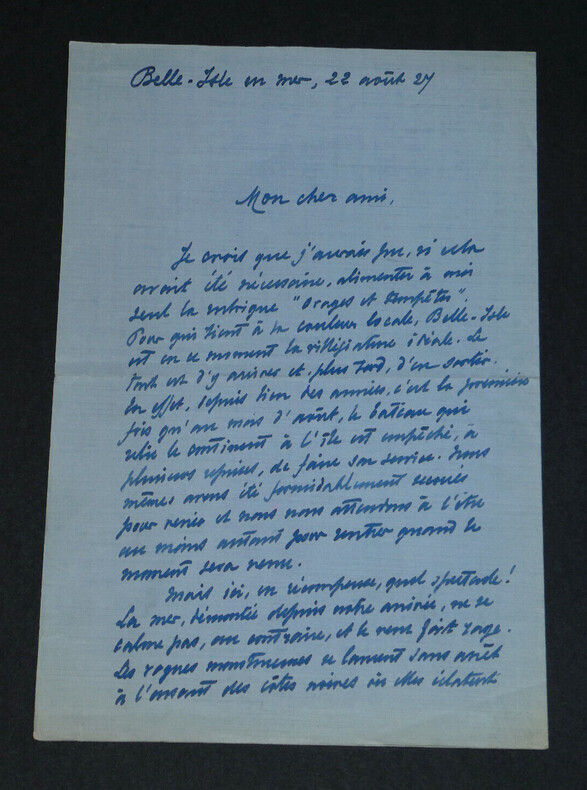 Belle-Isle en mer, 22 août 27
Mon cher ami,
Je crois que j'aurais pu, si cela
avait été nécessaire, alimenter à moi
seul la rubrique "Orages et Tempêtes".
Pour qui tient à la couleur locale, Belle-Isle
est en ce moment la villégiature idéale. Le
tout est d'y arriver et, plus tard, d'en sortir.
En effet, depuis bien des années, c'est la première
fois qu'au mois d'août, le bateau qui
relie le continent à l'île est empêché, à
plusieurs reprises, de faire son service. Nous
mêmes avons été formidablement secoués
pour venir et nous nous attendons à l'être
au moins autant pour rentrer quand le
moment sera venu.
Mais ici, en récompense, quel spectacle !
La mer, démontée depuis notre arrivée, ne se
calme pas, au contraire, et le vent fait rage.
Les vagues monstrueuses se lancent sans arrêt
à l'assaut des côtes noires où elles éclatent